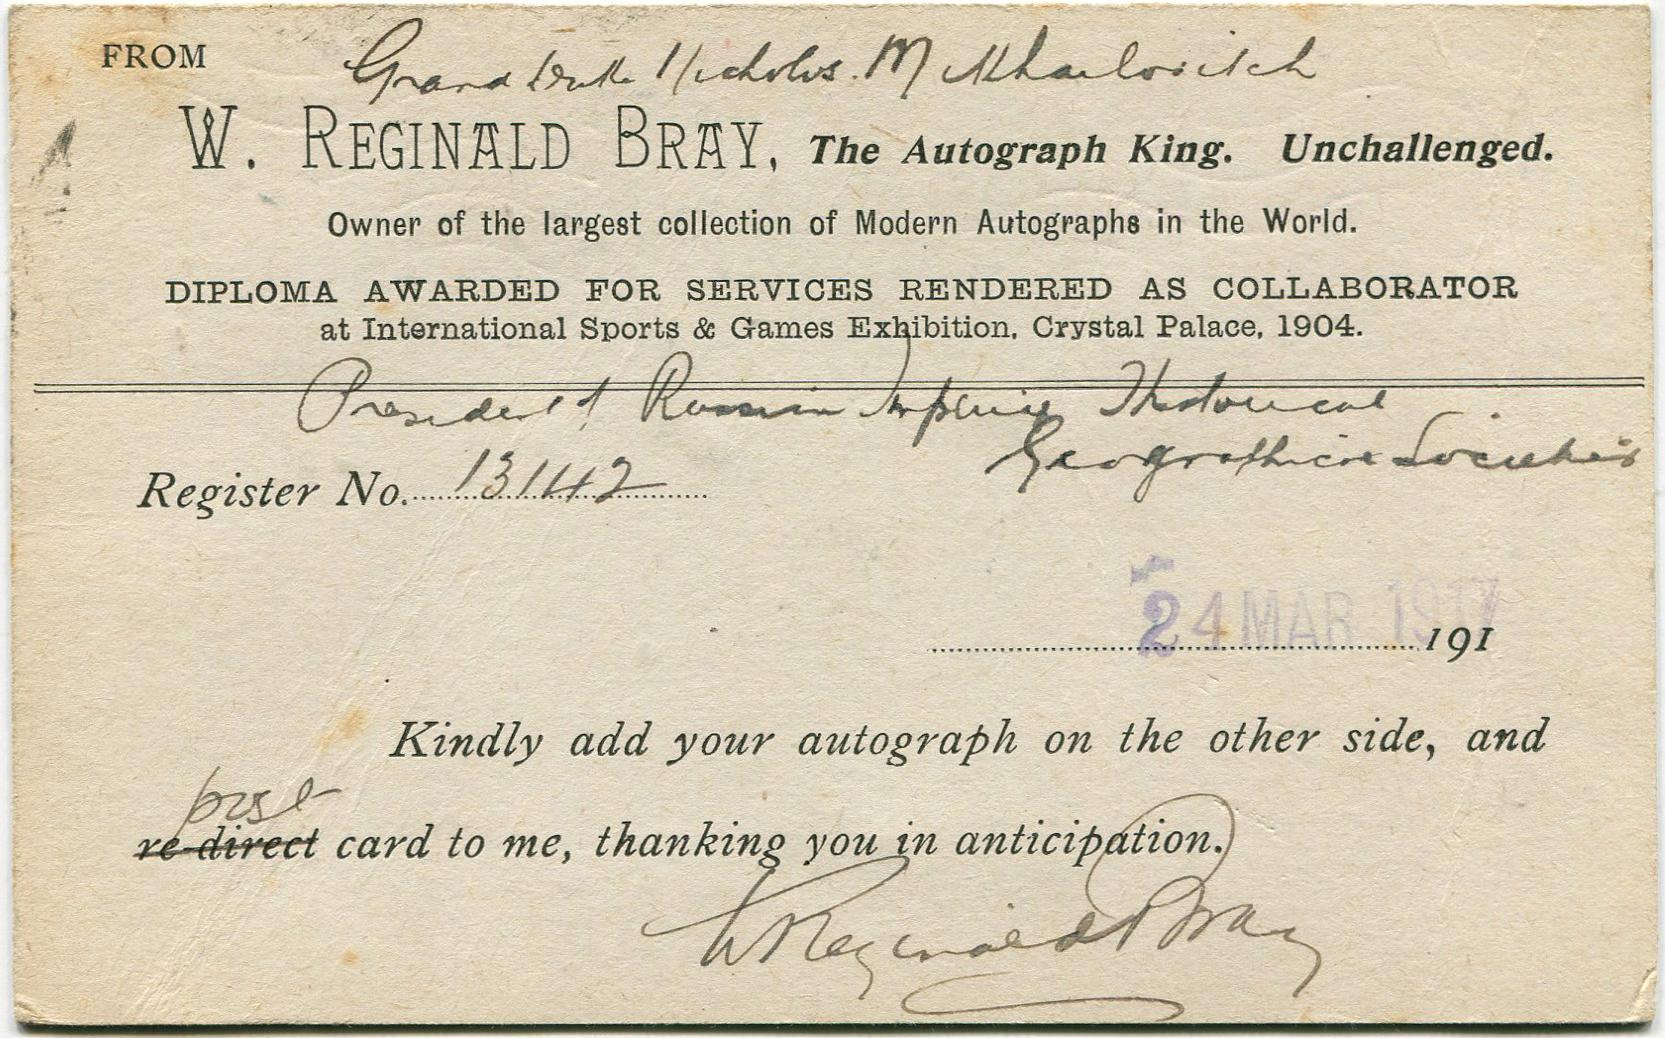 Grand Duke Nicholas. Mikhailovitch
FROM
W. REGINALD BRAY, The Autograph King. Unchallenged.
Owner of the largest collection of Modern Autographs in the World.
DIPLOMA AWARDED FOR SERVICES RENDERED AS COLLABORATOR
at International Sports & Games Exhibition, Crystal Palace, 1904.
President of Russian Imperial Historical
Geographical Societies
Register No. 13142
24 MAR 1917
191
Kindly add your autograph on the other side, and
post
re-direct card to me, thanking you in anticipation.
W Reginald Bray